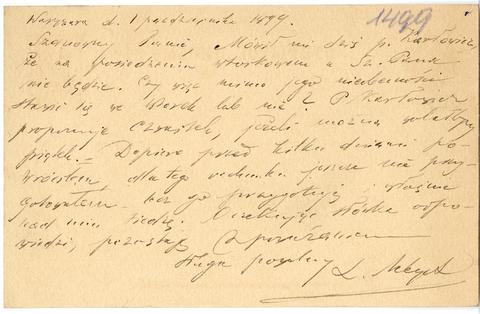 Warszawa d. 1 października 1899. 1499
Szanowny Panie, Mówił mi dziś p. Karłowicz,
że na posiedzeniu wtorkowem u Sz. Pana
nie będzie. Czy więc mimo jego nieobecności
stawić się we wtorek lub nie? P. Karłowicz
proponuje czwartek, jeśli można
piątek. – Dopiero przed kilku dniami po-
wróciłem, dlatego jeszcze nie przy-
gotowałem – lecz go przygotuję i właśnie
nad nim siedzę. Oczekując słówka odpo-
wiedzi, pozostaję z poważaniem
sługa powolny
L.